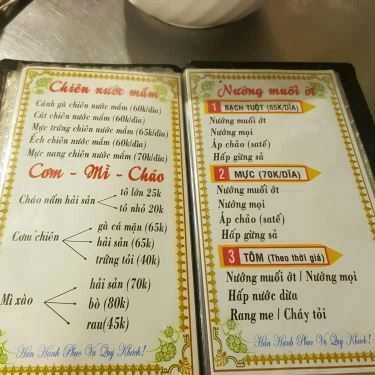 Chiên nước mắm
Cánh gà chiên nước mắm (60k/dĩa)
Cút chiên nước mắm (60k/dĩa)
Mực trứng chiên nước mắm (65k/dĩa)
Ếch chiên nước mắm (60k/dĩa)
Mực nang chiên nước mắm (70k/dĩa)
Cơm - Mì - Cháo
Cháo nấm hải sản
tô lớn 25k
tô nhỏ 20k
Cơm chiên
gà cá mặn (65k)
hải sản (65k)
trứng tỏi (40k)
Mì xào
hải sản (70k)
bò (80k)
rau(45k)
Hân Hạnh Phục Vụ Quý Khách!
Nướng muối ớt
1 BẠCH TUỘT (65K/DĨA)
Nướng muối ớt
Nướng mọi
Áp chảo (satế)
Hấp gừng sả
2 MỰC (70K/DĨA)
Nướng muối ớt
Nướng mọi
Áp chảo (satế)
Hấp gừng sả
3 TÔM (Theo thời giá)
Nướng muối ớt / Nướng mọi
Hấp nước dừa
Rang me / Cháy tỏi
Hân Hạnh Phục Vụ Quý Khách!